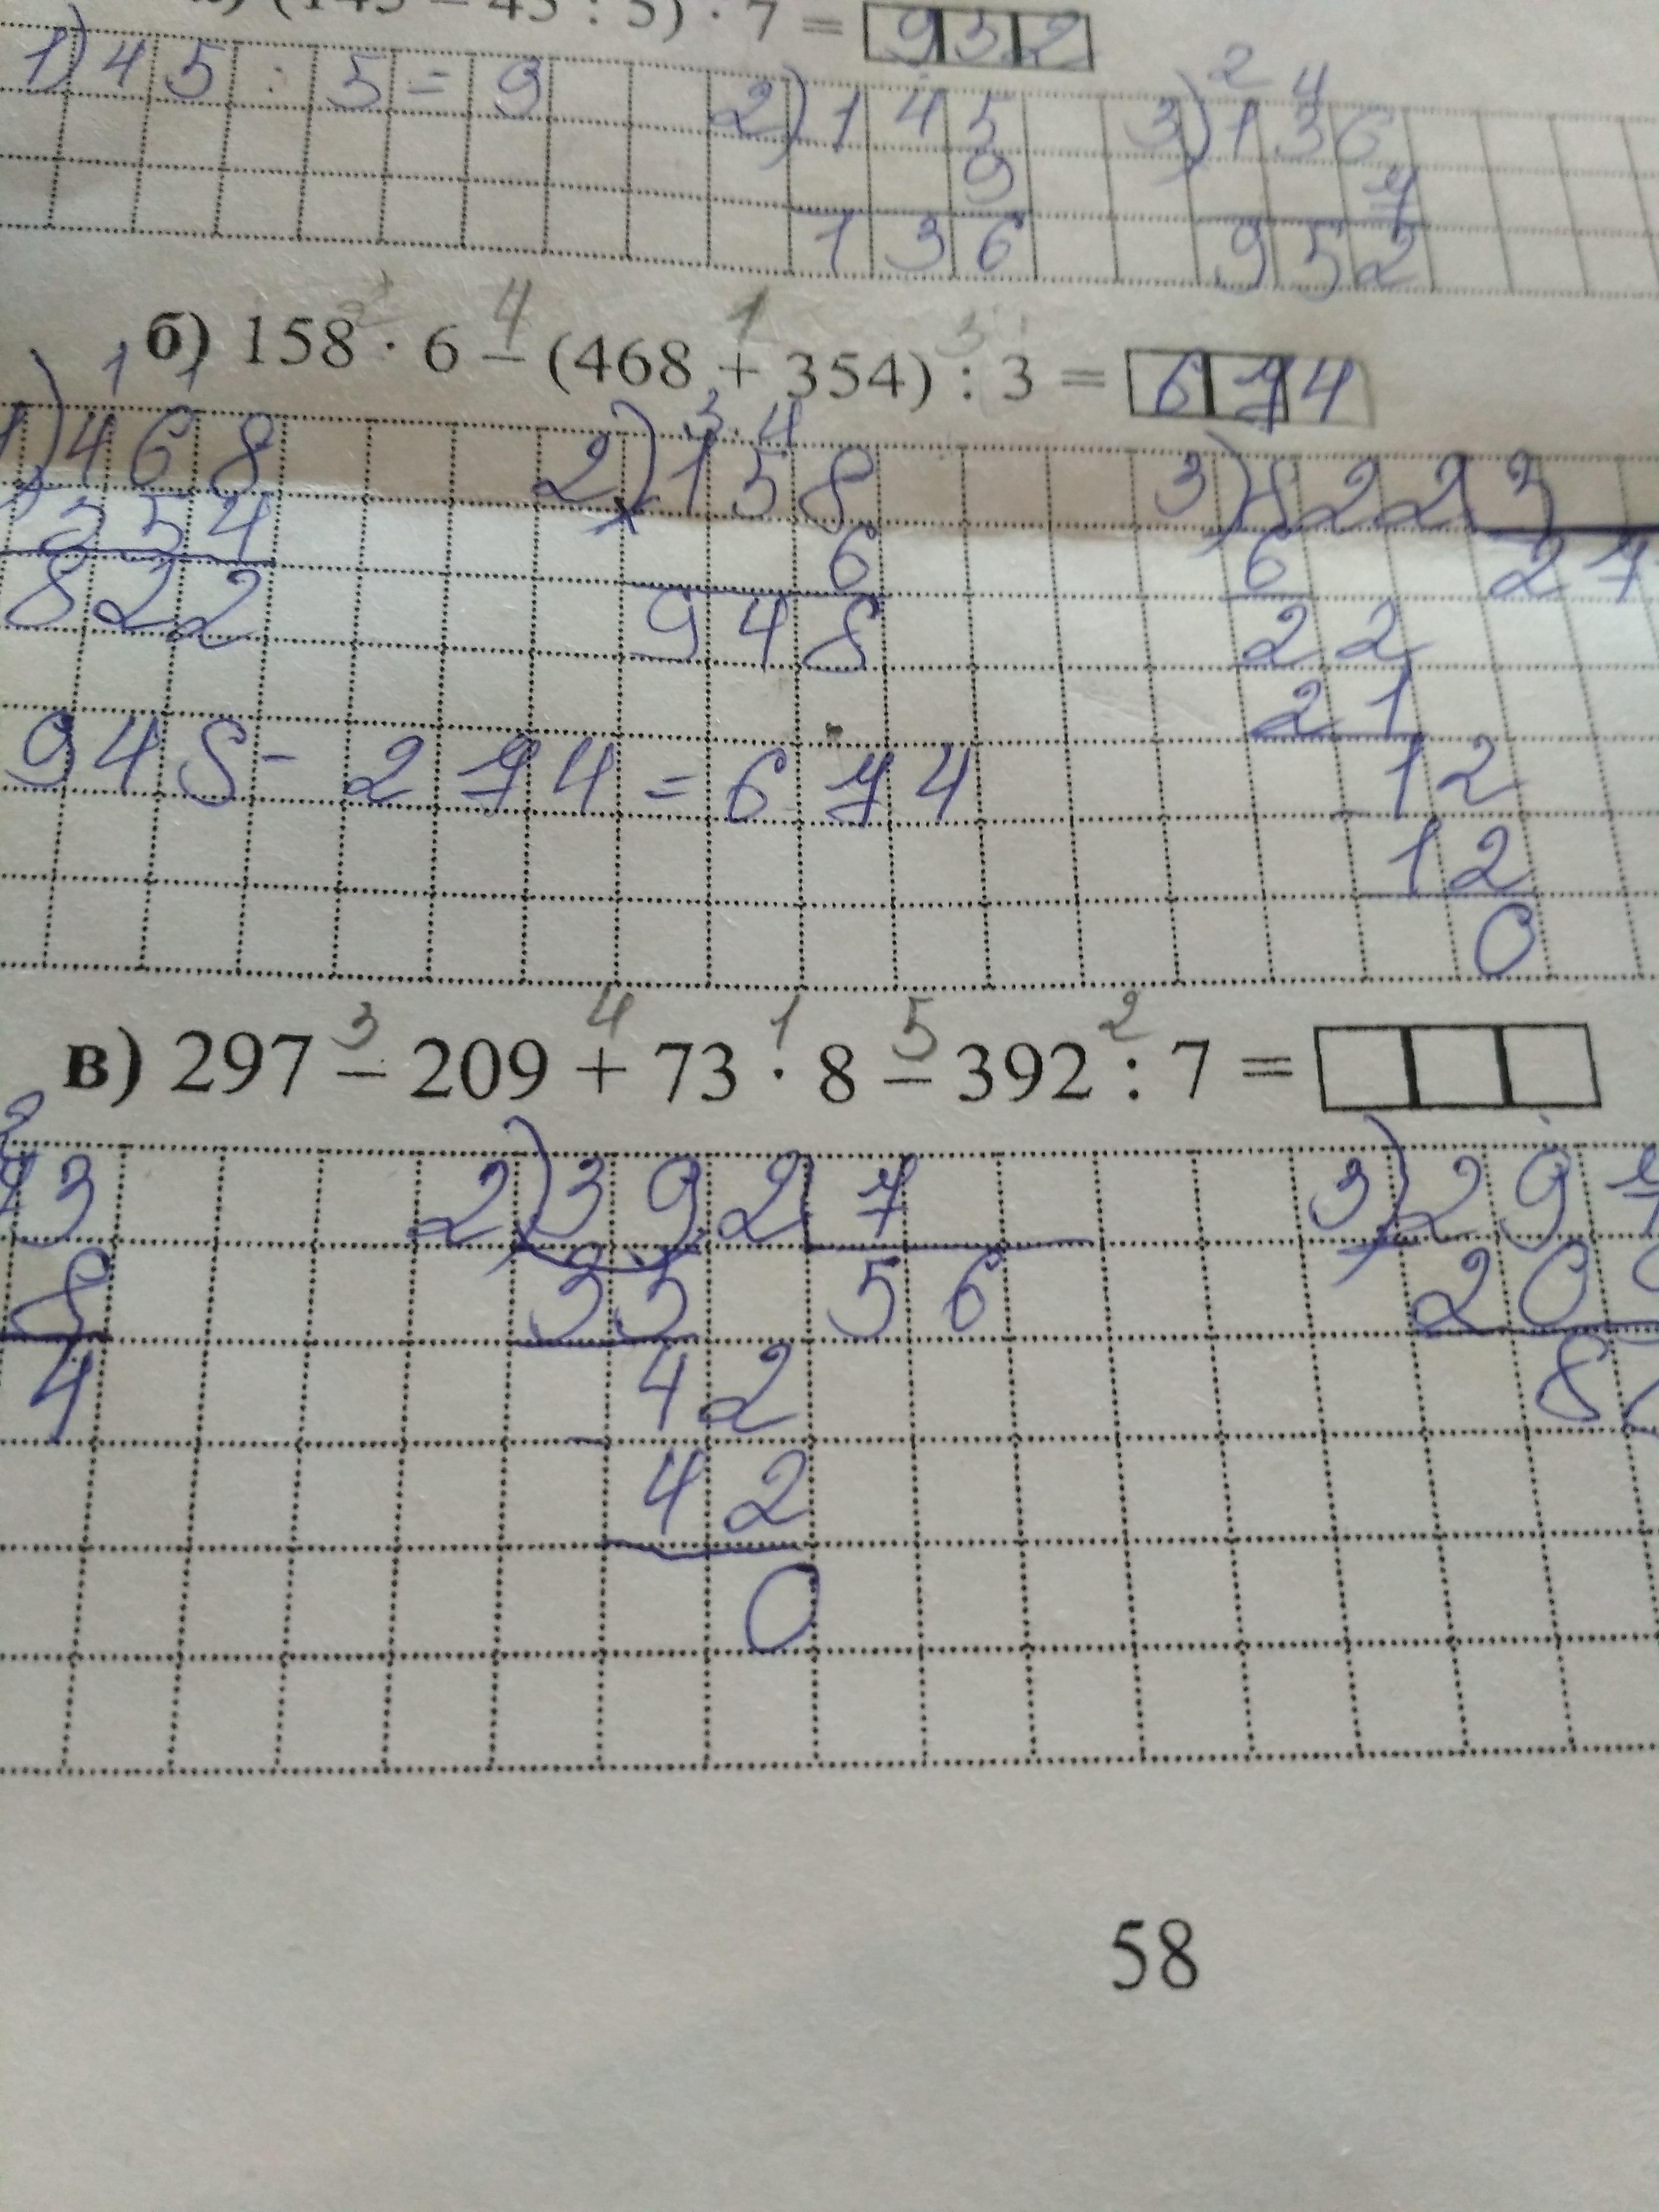 (145 − 45 : 5) · 7 = 952
1) 45 : 5 = 9 2) 145 3) 136
9 7
136 952
2 4 1 3
б) 158 · 6 − (468 + 354) : 3 = 674
1) 468 2) 158 3) 822 3
354 6 6 27
822 948 22
21
948 − 274 = 674 12
12
0
3 4 1 5 2
в) 297 − 209 + 73 · 8 − 392 : 7 =
73 2) 392 7 3) 297
8 35 56 209
4 42 8
42
0
58